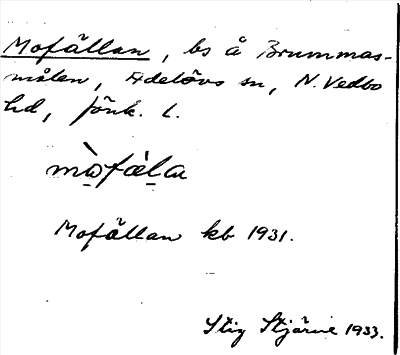 Mofällan, bs å Brummas-
målen, Adelövs sn, N. Vedbo
hd, Jönk. L.
mò̱fæ̀ḻa
Mofällan kb 1931.
Stig Stjärne 1933.